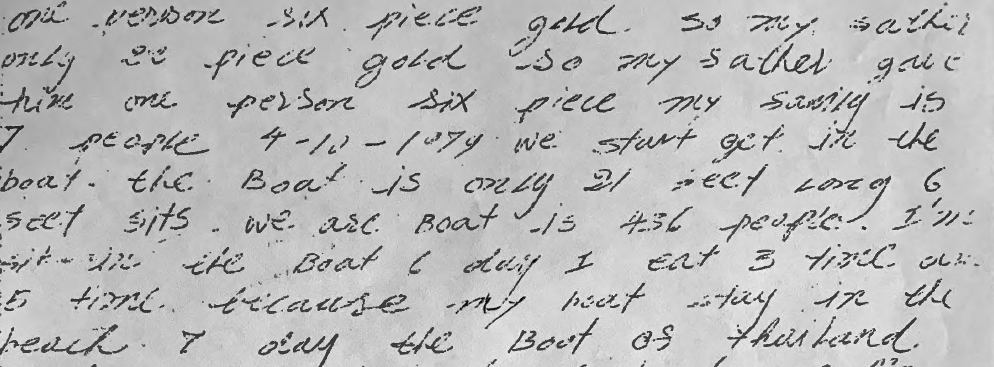 one person six piece gold. so my sather
only 22 piece gold so my sather gave
him one person six piece my samily is
7 people 4-10-1979 we start get in the
boat. the Boat is only 21 seet long 6
seet sits. we are Boat is 436 people. I'm
sit in the Boat 6 day I eat 3 time
5 time. because my boat stay in the
beach. 7 day the Boat os thailand.